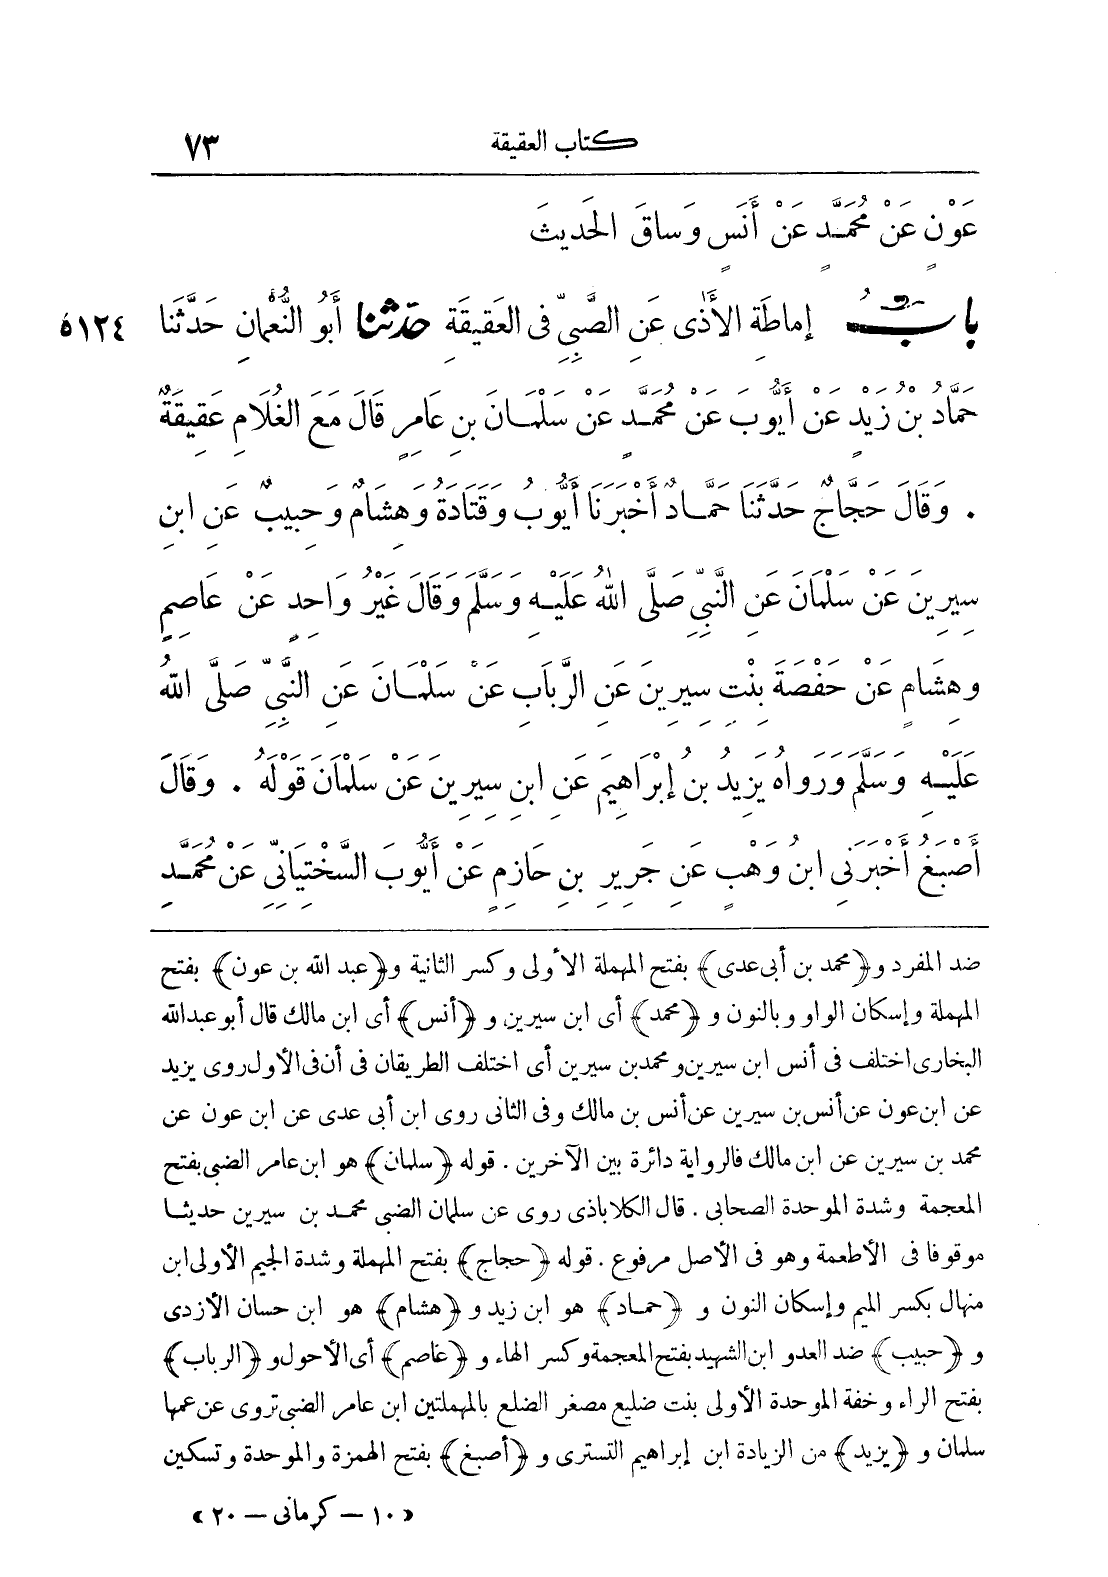 كتاب العقيقة ٧٣
عَوْنٍ عَنْ مُحَمَّدٍ عَنْ أَنَسٍ وَسَاقَ الحَدِيثَ
بابُ إماطَةِ الأَذٰى عَنِ الصَّبِيِّ فى العَقيقَةِ حدّثنا أَبُو النُّعْمانِ حَدَّثَنا ٥١٢٤
حَمَّادُ بْنُ زَيْدٍ عَنْ أَيُّوبَ عَنْ مُحَمَّدٍ عَنْ سَلْمَانَ بنِ عَامِرٍ قَالَ مَعَ الغُلَامِ عَقِيقَةٌ
. وَقَالَ حَجَّاجٌ حَدَّثَنَا حَمَّادٌ أَخْبَرَنَا أَيُّوبُ وَقَتَادَةُ وَهِشَامٌ وَحَبِيبٌ عَنِ ابنِ
سِيرِينَ عَنْ سَلْمَانَ عَنِ النَّبِيِّ صَلَّى اللهُ عَلَيْهِ وَسَلَّمَ وَقَالَ غَيْرُ وَاحِدٍ عَنْ عَاصِمٍ
وَهِشَامٍ عَنْ حَفْصَةَ بِنْتِ سِيرِينَ عَنِ الرَّبَابِ عَنْ سَلْمَانَ عَنِ النَّبِيِّ صَلَّى اللهُ
عَلَيْهِ وَسَلَّمَ وَرَوَاهُ يَزِيدُ بنُ إِبْرَاهِيمَ عَنِ ابنِ سِيرِينَ عَنْ سَلْمَانَ قَوْلَهُ . وَقَالَ
أَصْبَغُ أَخْبَرَنِى ابنُ وَهْبٍ عَنْ جَرِيرِ بنِ حَازِمٍ عَنْ أَيُّوبَ السَّخْتِيَانِيِّ عَنْ مُحَمَّدِ
ضد المفرد و﴿محمد بن أبى عدى﴾ بفتح المهملة الأولى وكسر الثانية و﴿عبد الله بن عون﴾ بفتح
المهملة وإسكان الواو وبالنون و ﴿محمد﴾ أى ابن سيرين و ﴿أنس﴾ أى ابن مالك قال أبو عبدالله
البخارى اختلف فى أنس ابن سيرين ومحمد بن سيرين أى اختلف الطريقان فى أن فى الأول روى يزيد
عن ابن عون عن أنس بن سيرين عن أنس بن مالك وفى الثانى روى ابن أبى عدى عن ابن عون عن
محمد بن سيرين عن ابن مالك فالرواية دائرة بين الآخرين . قوله ﴿سلمان﴾ هو ابن عامر الضبى بفتح
المعجمة وشدة الموحدة الصحابى . قال الكلاباذى روى عن سلمان الضبى محمد بن سيرين حديثا
موقوفا فى الأطعمة وهو فى الأصل مرفوع . قوله ﴿حجاج﴾ بفتح المهملة وشدة الجيم الأولى ابن
منهال بكسر الميم وإسكان النون و ﴿حماد﴾ هو ابن زيد و ﴿هشام﴾ هو ابن حسان الأزدى
و ﴿حبيب﴾ ضد العدو ابن الشهيد بفتح المعجمة وكسر الهاء و ﴿عاصم﴾ أى الأحول و ﴿الرباب﴾
بفتح الراء وخفة الموحدة الأولى بنت ضليع مصغر الضلع بالمهملتين ابن عامر الضبى تروى عن عمها
سلمان و ﴿يزيد﴾ من الزيادة ابن إبراهيم التسترى و ﴿أصبغ﴾ بفتح الهمزة والموحدة وتسكين
« ١٠ – كرمانى – ٢٠ »